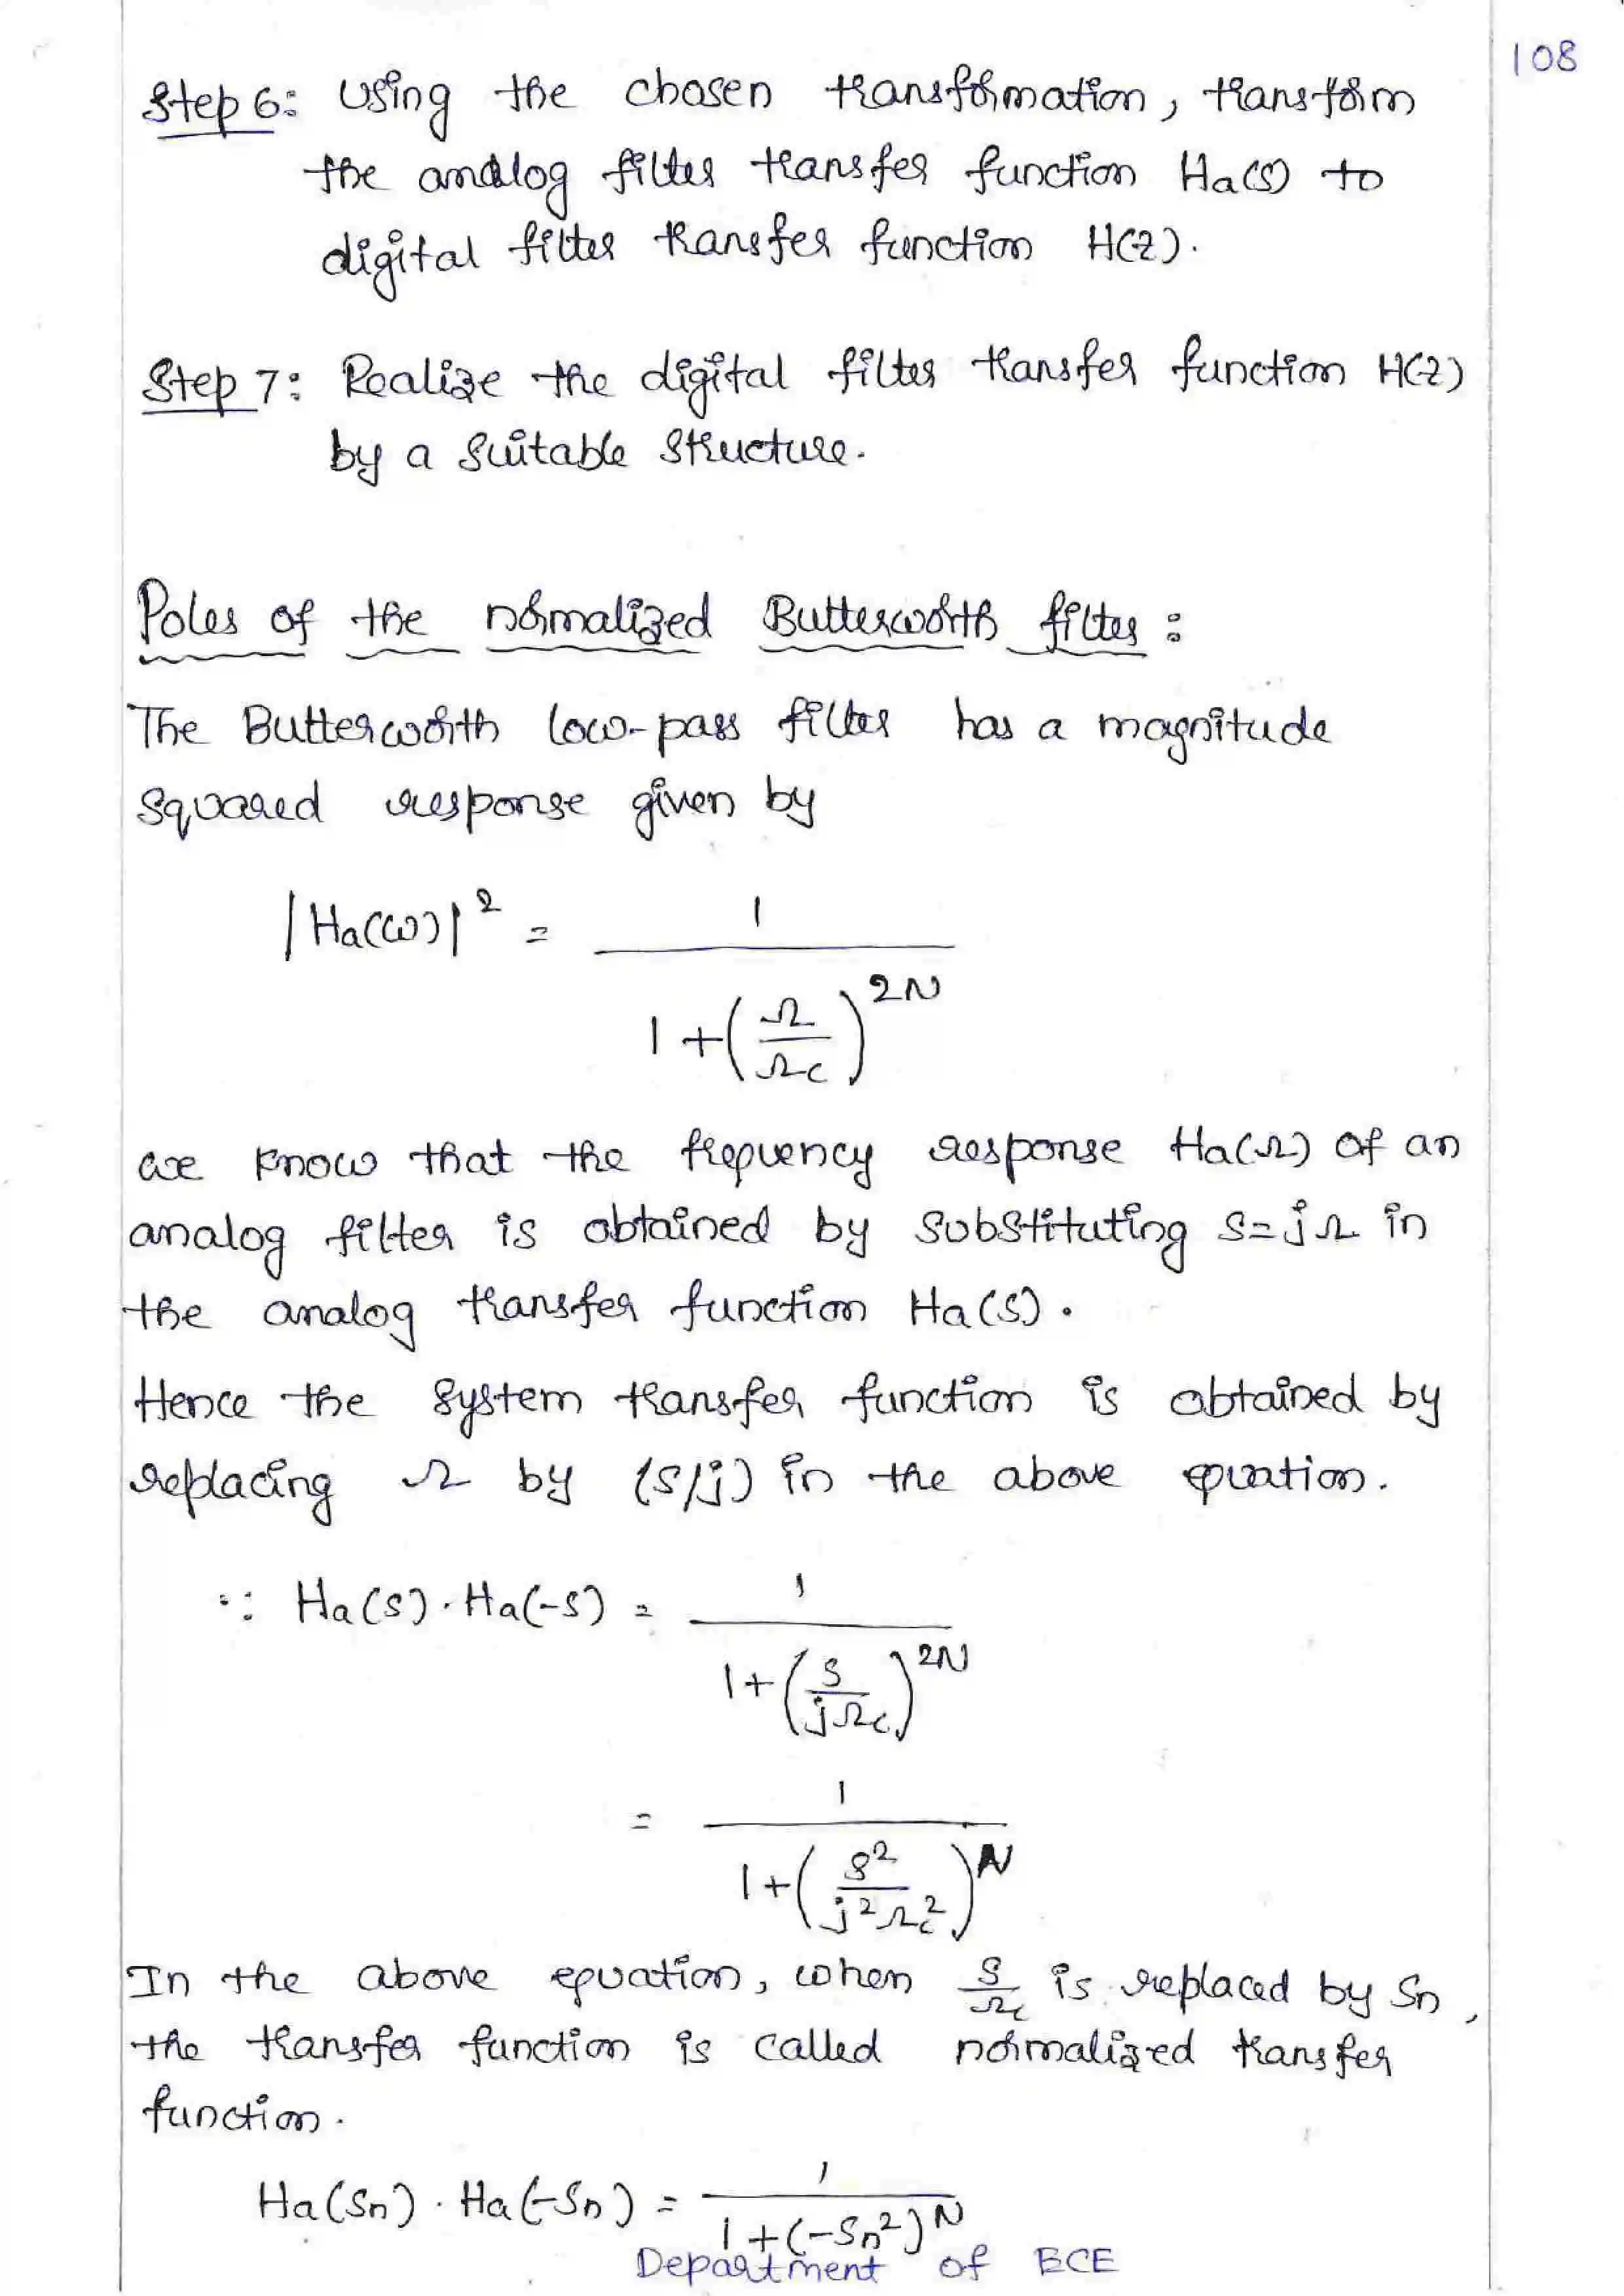 108
Step 6: Using the chosen transformation, transform
the analog filter transfer function Ha(s) to
digital filter transfer function H(z).
Step 7: Realize the digital filter transfer function H(z)
by a suitable structure.
Poles of the normalized Butterworth filter :
The Butterworth low-pass filter has a magnitude
squared response given by
|Ha(ω)|² = 1 / (1 + (Ω/Ωc)^2N)
we know that the frequency response Ha(Ω) of an
analog filter is obtained by substituting s=jΩ in
the analog transfer function Ha(s).
Hence the system transfer function is obtained by
replacing Ω by (s/j) in the above equation.
∵ Ha(s)·Ha(-s) = 1 / (1 + (s/jΩc)^2N)
= 1 / (1 + (s²/j²Ωc²)^N)
In the above equation, when s/Ωc is replaced by Sn,
the transfer function is called normalized transfer
function.
Ha(Sn)·Ha(-Sn) = 1 / (1 + (-Sn²)^N)
Department of ECE